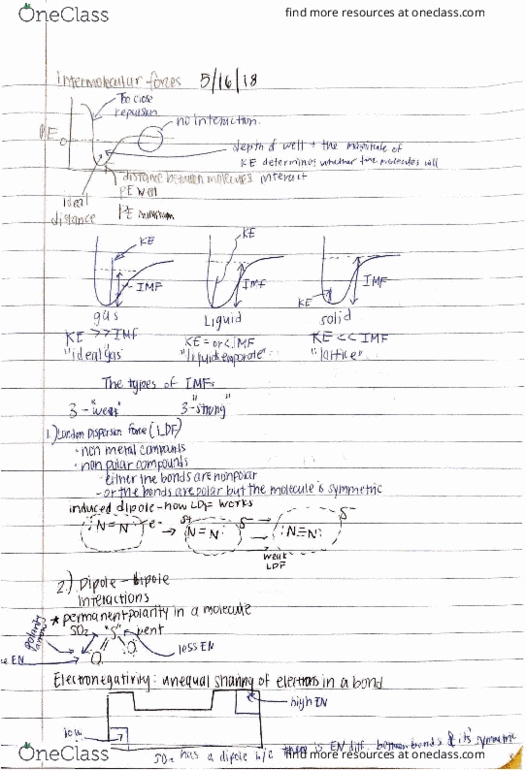 OneClass
find more resources at oneclass.com
intermolecular forces 5/16/18
Too close
repulsion
no interaction.
PE
0
depth of well + the magnitude of
KE determines whether the molecules will
interact
distance between molecules
PE well
PE minimum
ideal
distance
KE
KE
IMF
IMF
KE
IMF
gas
Liquid
solid
KE >> IMF
KE = or < IMF
KE << IMF
"ideal gas"
"lattice"
The types of IMFs
3 - "weak" 3 - "strong"
1.) London Dispersion Force (LDF)
· non metal compounds
· non polar compounds
- either the bonds are nonpolar
- or the bonds are polar but the molecule is symmetric
induced dipole - how LDF works
:N=N: e- → δ+ N=N: δ- → :N≡N: δ-
weak
LDF
2.) Dipole - Dipole
Interactions
* permanent polarity in a molecule
polarity
arrows
SO2
"S"
bent
O
O
less EN
EN
Electronegativity: unequal sharing of electrons in a bond
high EN
low
SO2 has a dipole b/c there is EN diff. between bonds & its symmetric
OneClass
find more resources at oneclass.com